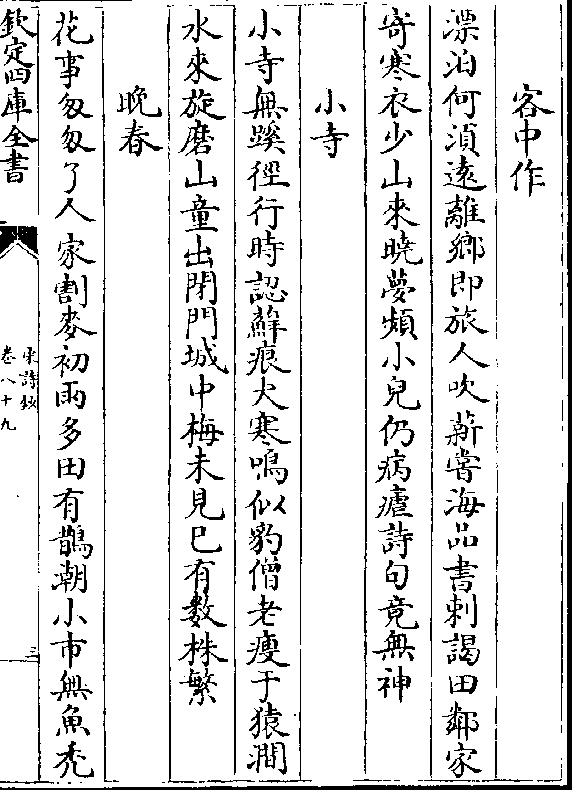 客中作
漂泊何湏遠離鄉即旅人吹薪嘗海品書刺謁田鄰家
寄寒衣少山來曉夢頻小兒仍病瘧詩句竟無神
小寺
小寺無蹊徑行時認蘚痕犬寒鳴似豹僧老瘦于猿澗
水來旋磨山童出閉門城中梅未見巳有數株繁
晚春
花事匆匆了人家割麥初雨多田有鵲潮小市無魚禿
欽定四庫全書
宋詩鈔
卷八十九
三